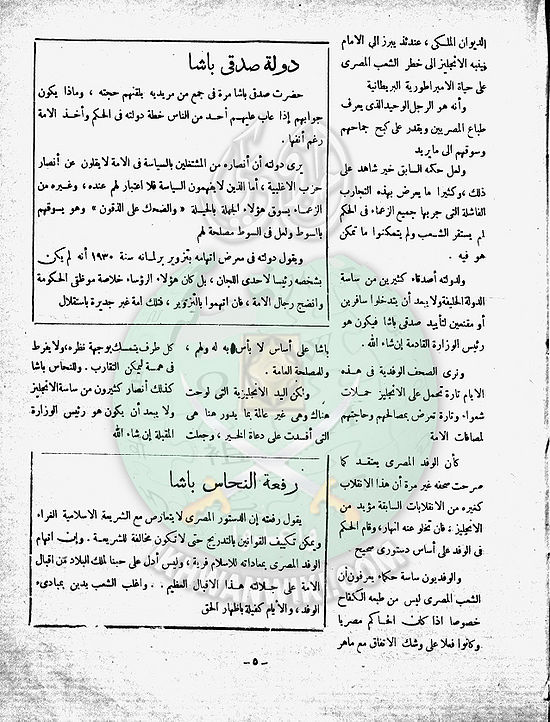 الديوان الملكى ، عندئذ يبرز الى الامام
فينبه الانجليز الى خطر الشعب المصرى
على حياة الامبراطورية البريطانية
وأنه هو الرجل الوحيد الذى يعرف
طباع المصريين ويقدر على كبح جماحهم
وسوقهم الى ما يريد
ولعل حكمه السابق خير شاهد على
ذلك ، وكثيرا ما يعرض بهذه التجارب
الفاشلة التى جربها جميع الزعماء فى الحكم
لم يستقر الشعب ولم يتمكنوا مما تمكن
هو فيه .
ولدولته أصدقاء كثيرين من ساسة
الدولة الحليفة ولا يبعد أن يتدخلوا سافرين
أو مقنعين لتأييد صدقى باشا فيكون هو
رئيس الوزارة القادمة إن شاء الله .
ونرى الصحف الوفدية فى هذه
الايام تارة تحمل على الانجليز حملات
شعواء وتارة تعرض بمصالحهم وحاجتهم
لمصافات الامة
كأن الوفد المصرى يعتقد كما
صرحت صحفه غير مرة أن هذا الانقلاب
كغيره من الانقلابات السابقة مؤيد من
الانجليز ، فان تخلو عنه انهار ، وقام الحكم
فى الوفد على أساس دستورى صحيح
والوفديون ساسة حكماء يعرفون أن
الشعب المصرى ليس من طبعه الكفاح
خصوصا اذا كان الحاكم مصريا
وكانوا فعلا على وشك الاتفاق مع ماهر
دولة صدقى باشا
حضرت صدقى باشا مرة فى جمع من مريديه يلقنهم حجته ، وماذا يكون
جوابهم إذا عاب عليهم أحد من الناس خطة دولته فى الحكم وأخذ الامة
رغم أنفها .
يرى دولته أن أنصاره من المشتغلين بالسياسة فى الامة لا يقلون عن أنصار
حزب الاغلبية ، أما الذين لا يفهمون السياسة فلا اعتبار لهم عنده ، وغيره من
الزعماء يسوق هؤلاء الجهلة بالحيلة « والضحك على الذقون » وهو يسوقهم
بالسوط ولعل فى السوط مصلحة لهم
ويقول دولته فى معرض اتهامه بتزوير برلمانه سنة ١٩٣٠ أنه لم يكن
بشخصه رئيسا لاحدى اللجان ، بل كان هؤلاء الرؤساء خلاصة موظفى الحكومة
وانضج رجال الامة ، فان اتهموا بالتزوير ، فتلك امة غير جديرة باستقلال
باشا على أساس لا بأس به له ولهم ،
وللمصلحة العامة .
ولكن اليد الانجليزية التى لوحت
هناك وهى غير عالمة بما يدور هنا هى
التى أفسدت على دعاة الخير ، وجعلت
كل طرف يتمسك بوجهة نظره ، ولا يفرط
فى همسة ليمكن التقارب . وللنحاس باشا
كذلك أنصار كثيرون من ساسة الانجليز
ولا يبعد أن يكون هو رئيس الوزارة
المقبلة إن شاء الله
رفعة النحاس باشا
يقول رفعته إن الدستور المصرى لا يتعارض مع الشريعة الاسلامية الغراء
ويمكن تكييف القوانين بالتدريج حتى لا تكون مخالفة للشريعة . وإن اتهام
الوفد المصرى بمعاداته للاسلام فرية ، وليس أدل على حبنا لملك البلاد من اقبال
الامة على جلالته هذا الاقبال العظيم . . واغلب الشعب يدين بمبادىء
الوفد ، والأيام كفيلة باظهار الحق
- ٥ -